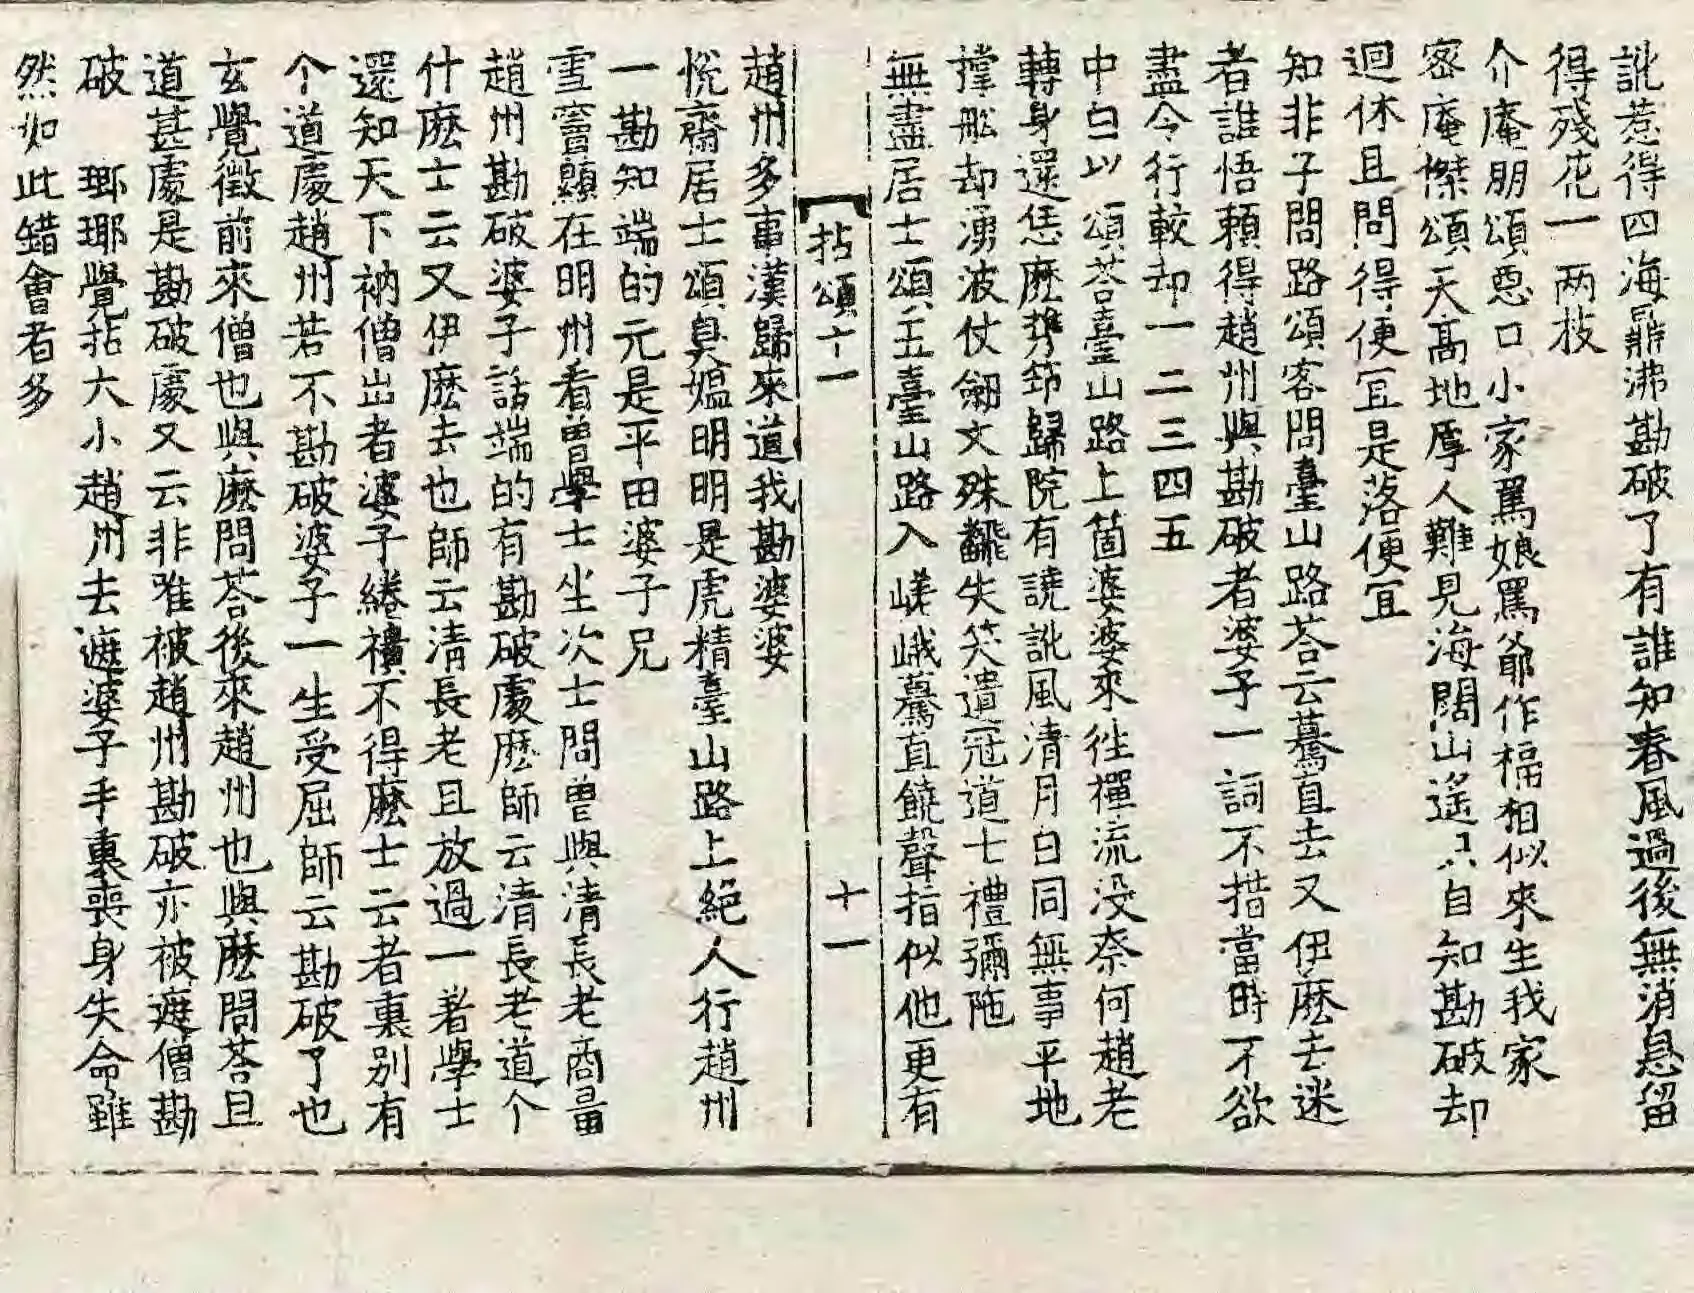 訛惹得四海鼎沸勘破了有誰知春風過後無消息留
得殘花一两枝
介庵朋頌惡口小家罵娘罵爺作槅相似來生我家
密庵傑頌天高地厚人難見海闊山遙只自知勘破却
迴休且問得便冝是落便冝
知非子問路頌客問臺山路荅云驀直去又伊麽去迷
者誰悟賴得趙州與勘破者婆子一詞不措當時不欲
盡令行較却一二三四五
中白以頌荅臺山路上箇婆婆來徃禪流没奈何趙老
轉身還恁麽芽笻歸院有譊訛風清月白同無事平地
撑船却湧波仗劒文殊翻失笑遺冠道士禮彌陁
無盡居士頌五臺山路入嵯峨驀直饒聲指似他更有
拈頌六一
十一
趙州多事漢歸來道我勘婆婆
悅齋居士頌臭媼明明是虎精臺山路上絕人行趙州
一勘知端的元是平田婆子兄
雪竇顯在明州看曽學士坐次士問曽與清長老商量
趙州勘破婆子話端的有勘破處麽師云清長老道个
什麽士云又伊麽去也師云清長老且放過一著學士
還知天下衲僧出者婆子綣䙡不得麽士云者裏别有
个道處趙州若不勘破婆子一生受屈師云勘破了也
玄覺徵前來僧也與麽問荅後來趙州也與麽問荅且
道甚處是勘破處又云非唯被趙州勘破亦被遮僧勘
破　瑯瑘覺拈大小趙州去遮婆子手裏喪身失命雖
然如此錯會者多